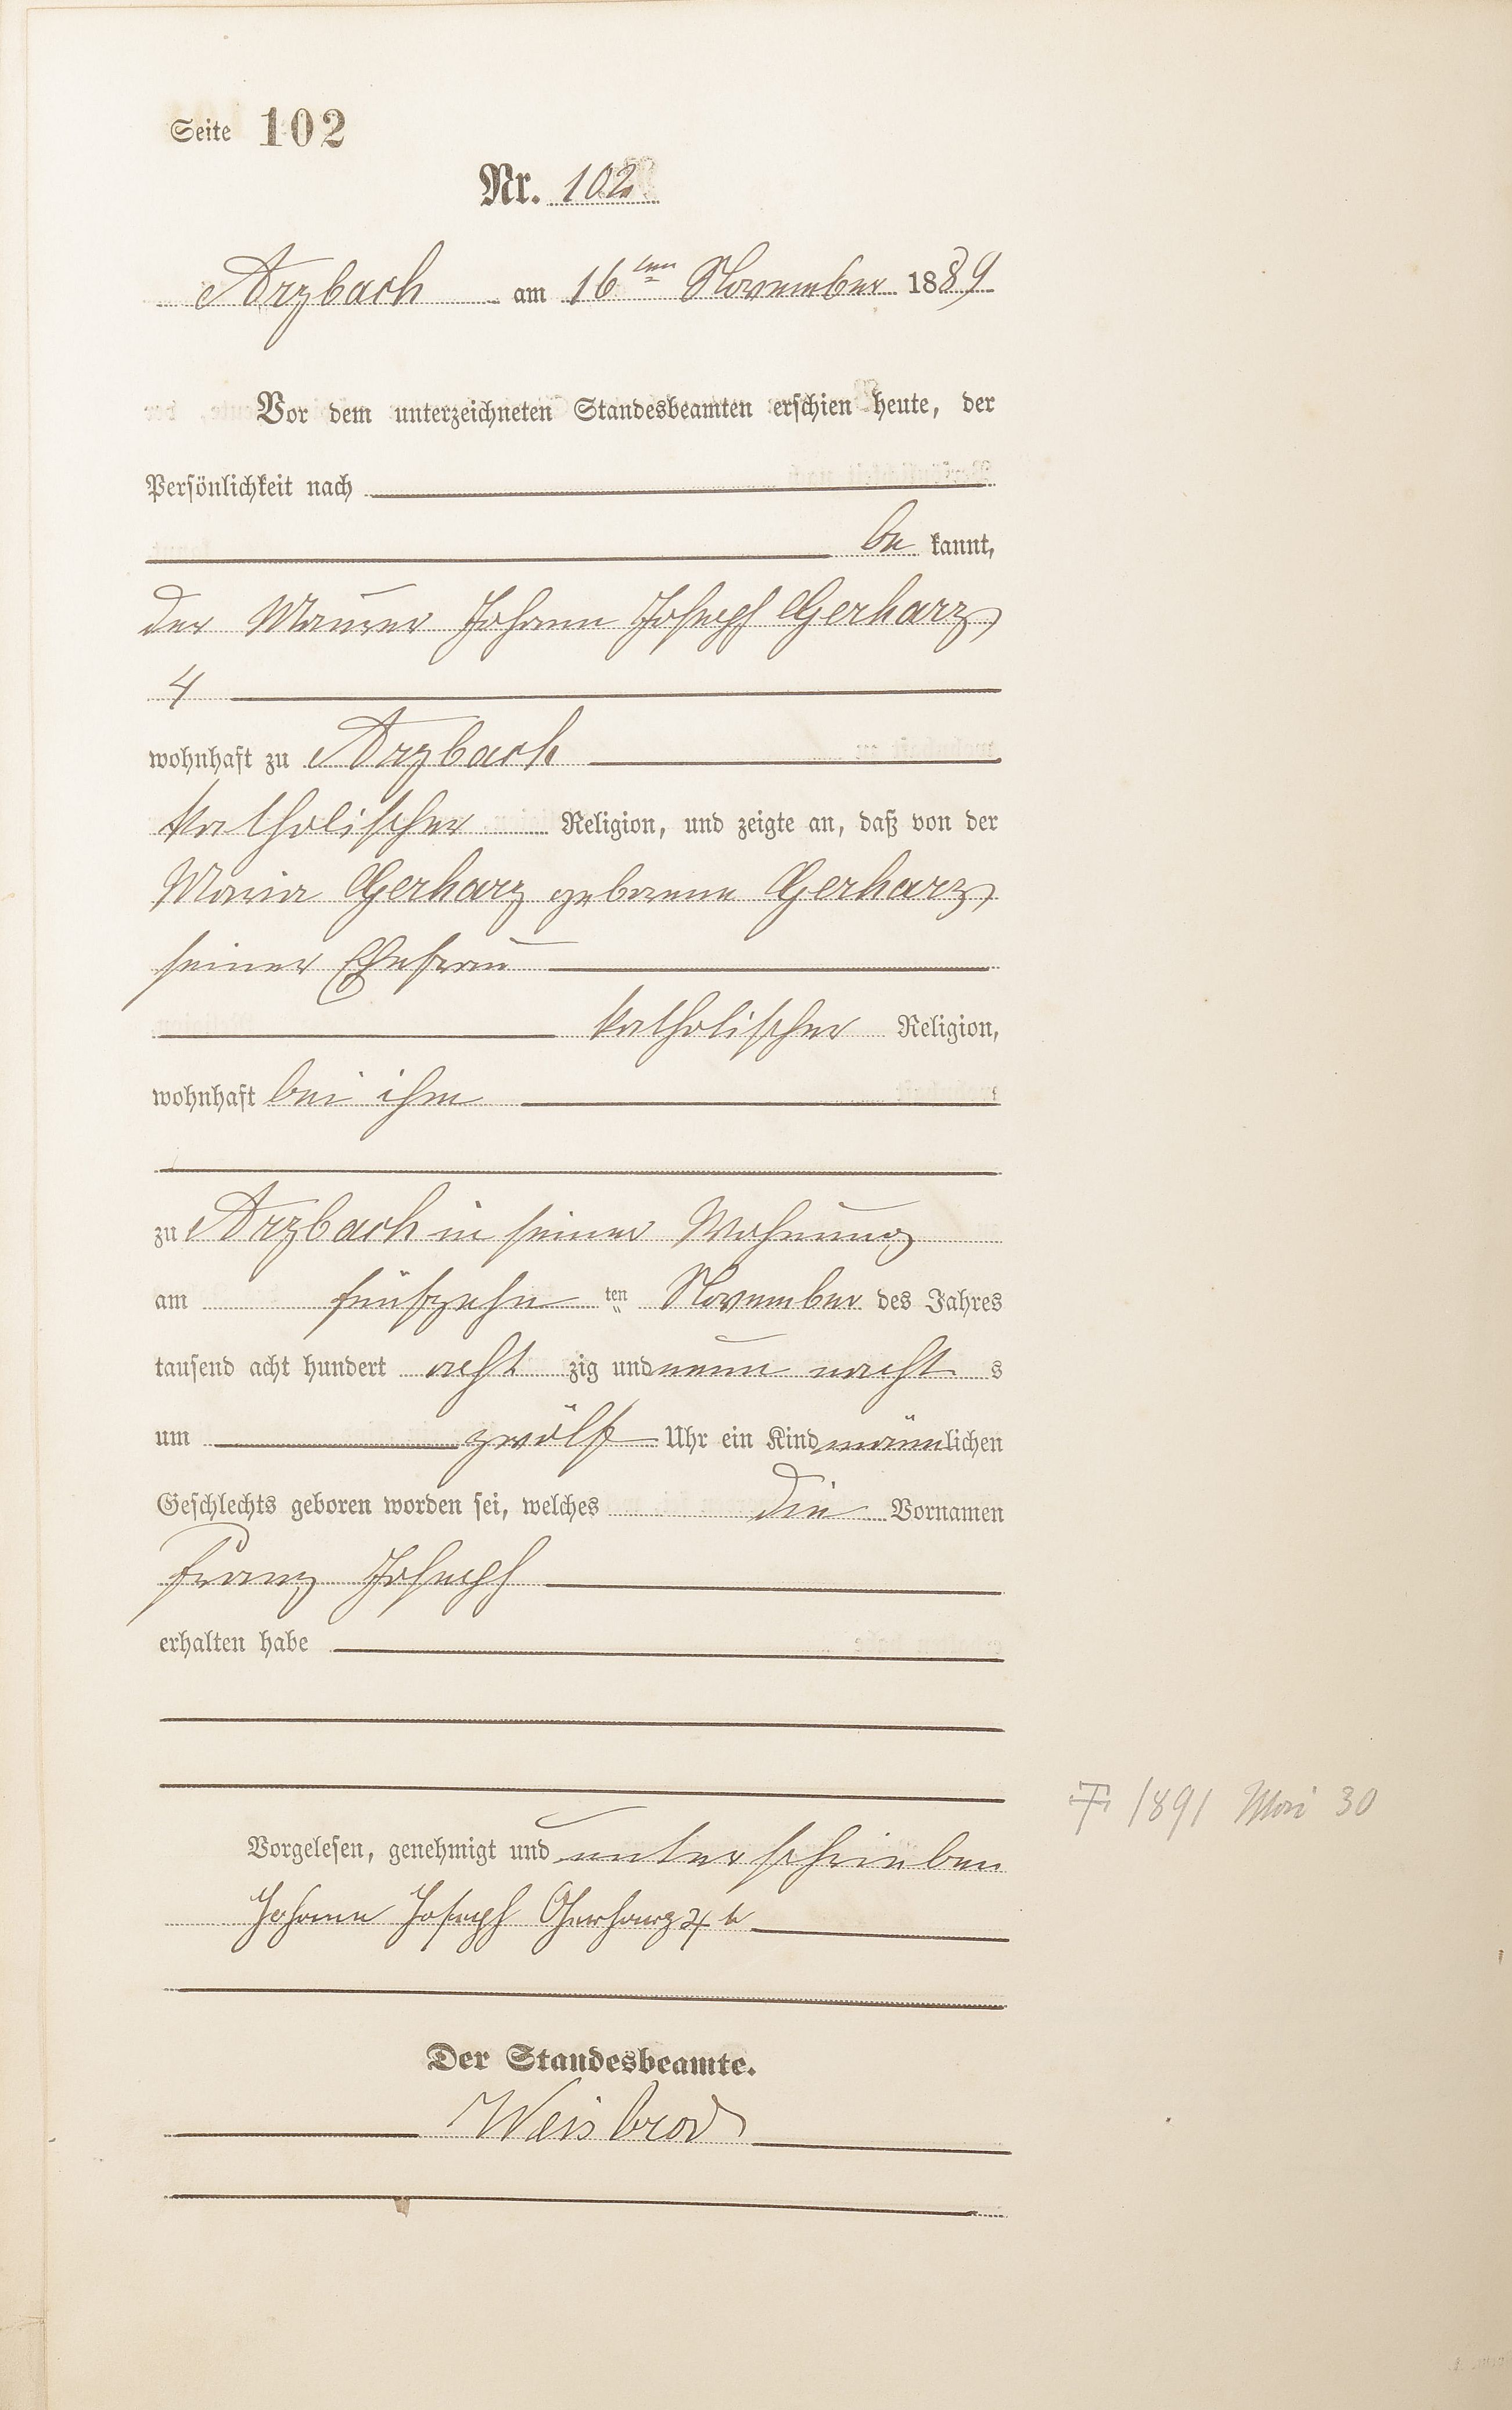 Seite 102
Nr. 102
Arzbach am 16ten November 1889
Vor dem unterzeichneten Standesbeamten erschien heute, der
Persönlichkeit nach
be kannt,
der Maurer Johann Joseph Gerharz
4
wohnhaft zu Arzbach
katholischer Religion, und zeigte an, daß von der
Maria Gerharz geborene Gerharz
seiner Ehefrau
katholischer Religion,
wohnhaft bei ihm
zu Arzbach in seiner Wohnung
am fünfzehn ten November des Jahres
tausend acht hundert acht zig und neun nacht s
um zwölf Uhr ein Kind männlichen
Geschlechts geboren worden sei, welches die Vornamen
Franz Joseph
erhalten habe
† 1891 Mai 30
Vorgelesen, genehmigt und unterschrieben
Johann Joseph Gerharz 4
Der Standesbeamte.
Weisbrod